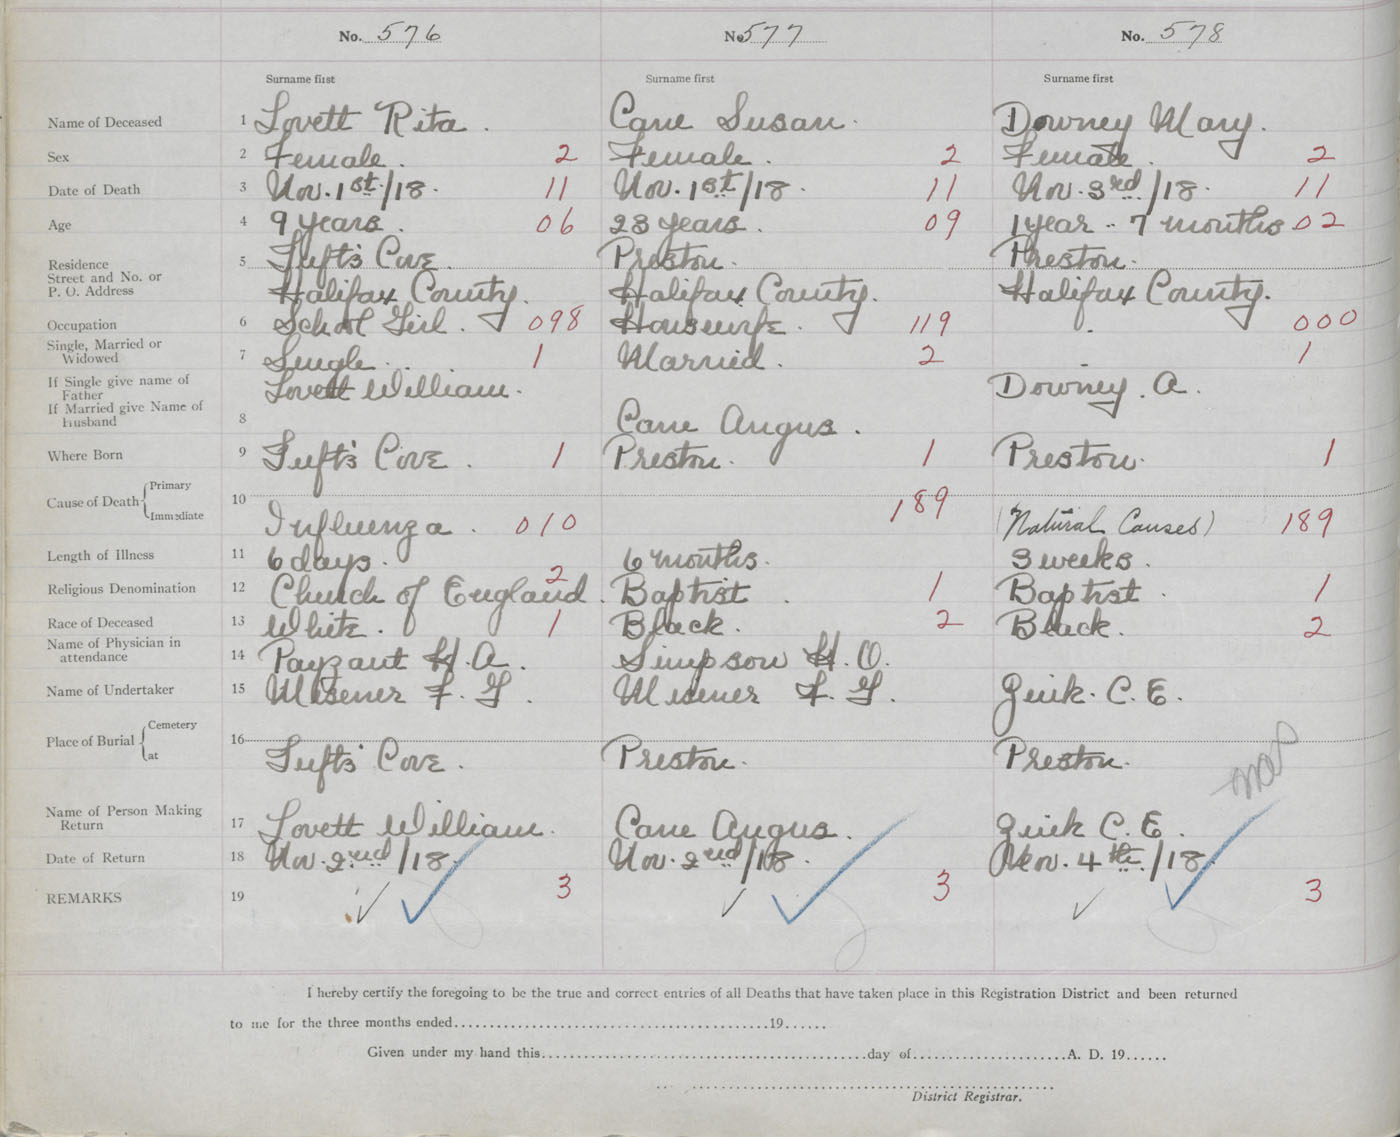 No. 576 No. 577 No. 578
Surname first Surname first Surname first
Name of Deceased 1 Lovett Rita. Cane Susan. Downey Mary.
Sex 2 Female. 2 Female. 2 Female. 2
Date of Death 3 Nov. 1st/18. 11 Nov. 1st/18. 11 Nov. 3rd/18. 11
Age 4 9 years. 06 23 years. 09 1 year.. 7 months 02
Residence 5 Tuft's Cove. Preston. Preston.
Street and No. or
P. O. Address Halifax County. Halifax County. Halifax County.
Occupation 6 School Girl. 098 Housewife. 119 . 000
Single, Married or
Widowed 7 Single. 1 Married. 2 1
If Single give name of
Father Lovett William. Downey. A.
If Married give Name of
Husband 8 Cane Angus.
Where Born 9 Tuft's Cove. 1 Preston. 1 Preston. 1
Cause of Death Primary 10 189
Immediate Influenza. 010 (Natural Causes) 189
Length of Illness 11 6 days. 6 months. 3 weeks.
Religious Denomination 12 Church of England. 2 Baptist. 1 Baptist. 1
Race of Deceased 13 White. 1 Black. 2 Black. 2
Name of Physician in
attendance 14 Payzant H. A. Simpson H. O.
Name of Undertaker 15 Misener F. G. Misener F. G. Zink. C. E.
Place of Burial Cemetery 16
at Tufts' Cove. Preston. Preston.
Name of Person Making
Return 17 Lovett William. Cane Angus. Zink C. E.
Date of Return 18 Nov. 2nd/18. Nov. 2nd/18. Nov. 4th./18.
REMARKS 19 3 3 3
I hereby certify the foregoing to be the true and correct entries of all Deaths that have taken place in this Registration District and been returned
to me for the three months ended 19
Given under my hand this day of A. D. 19
District Registrar.